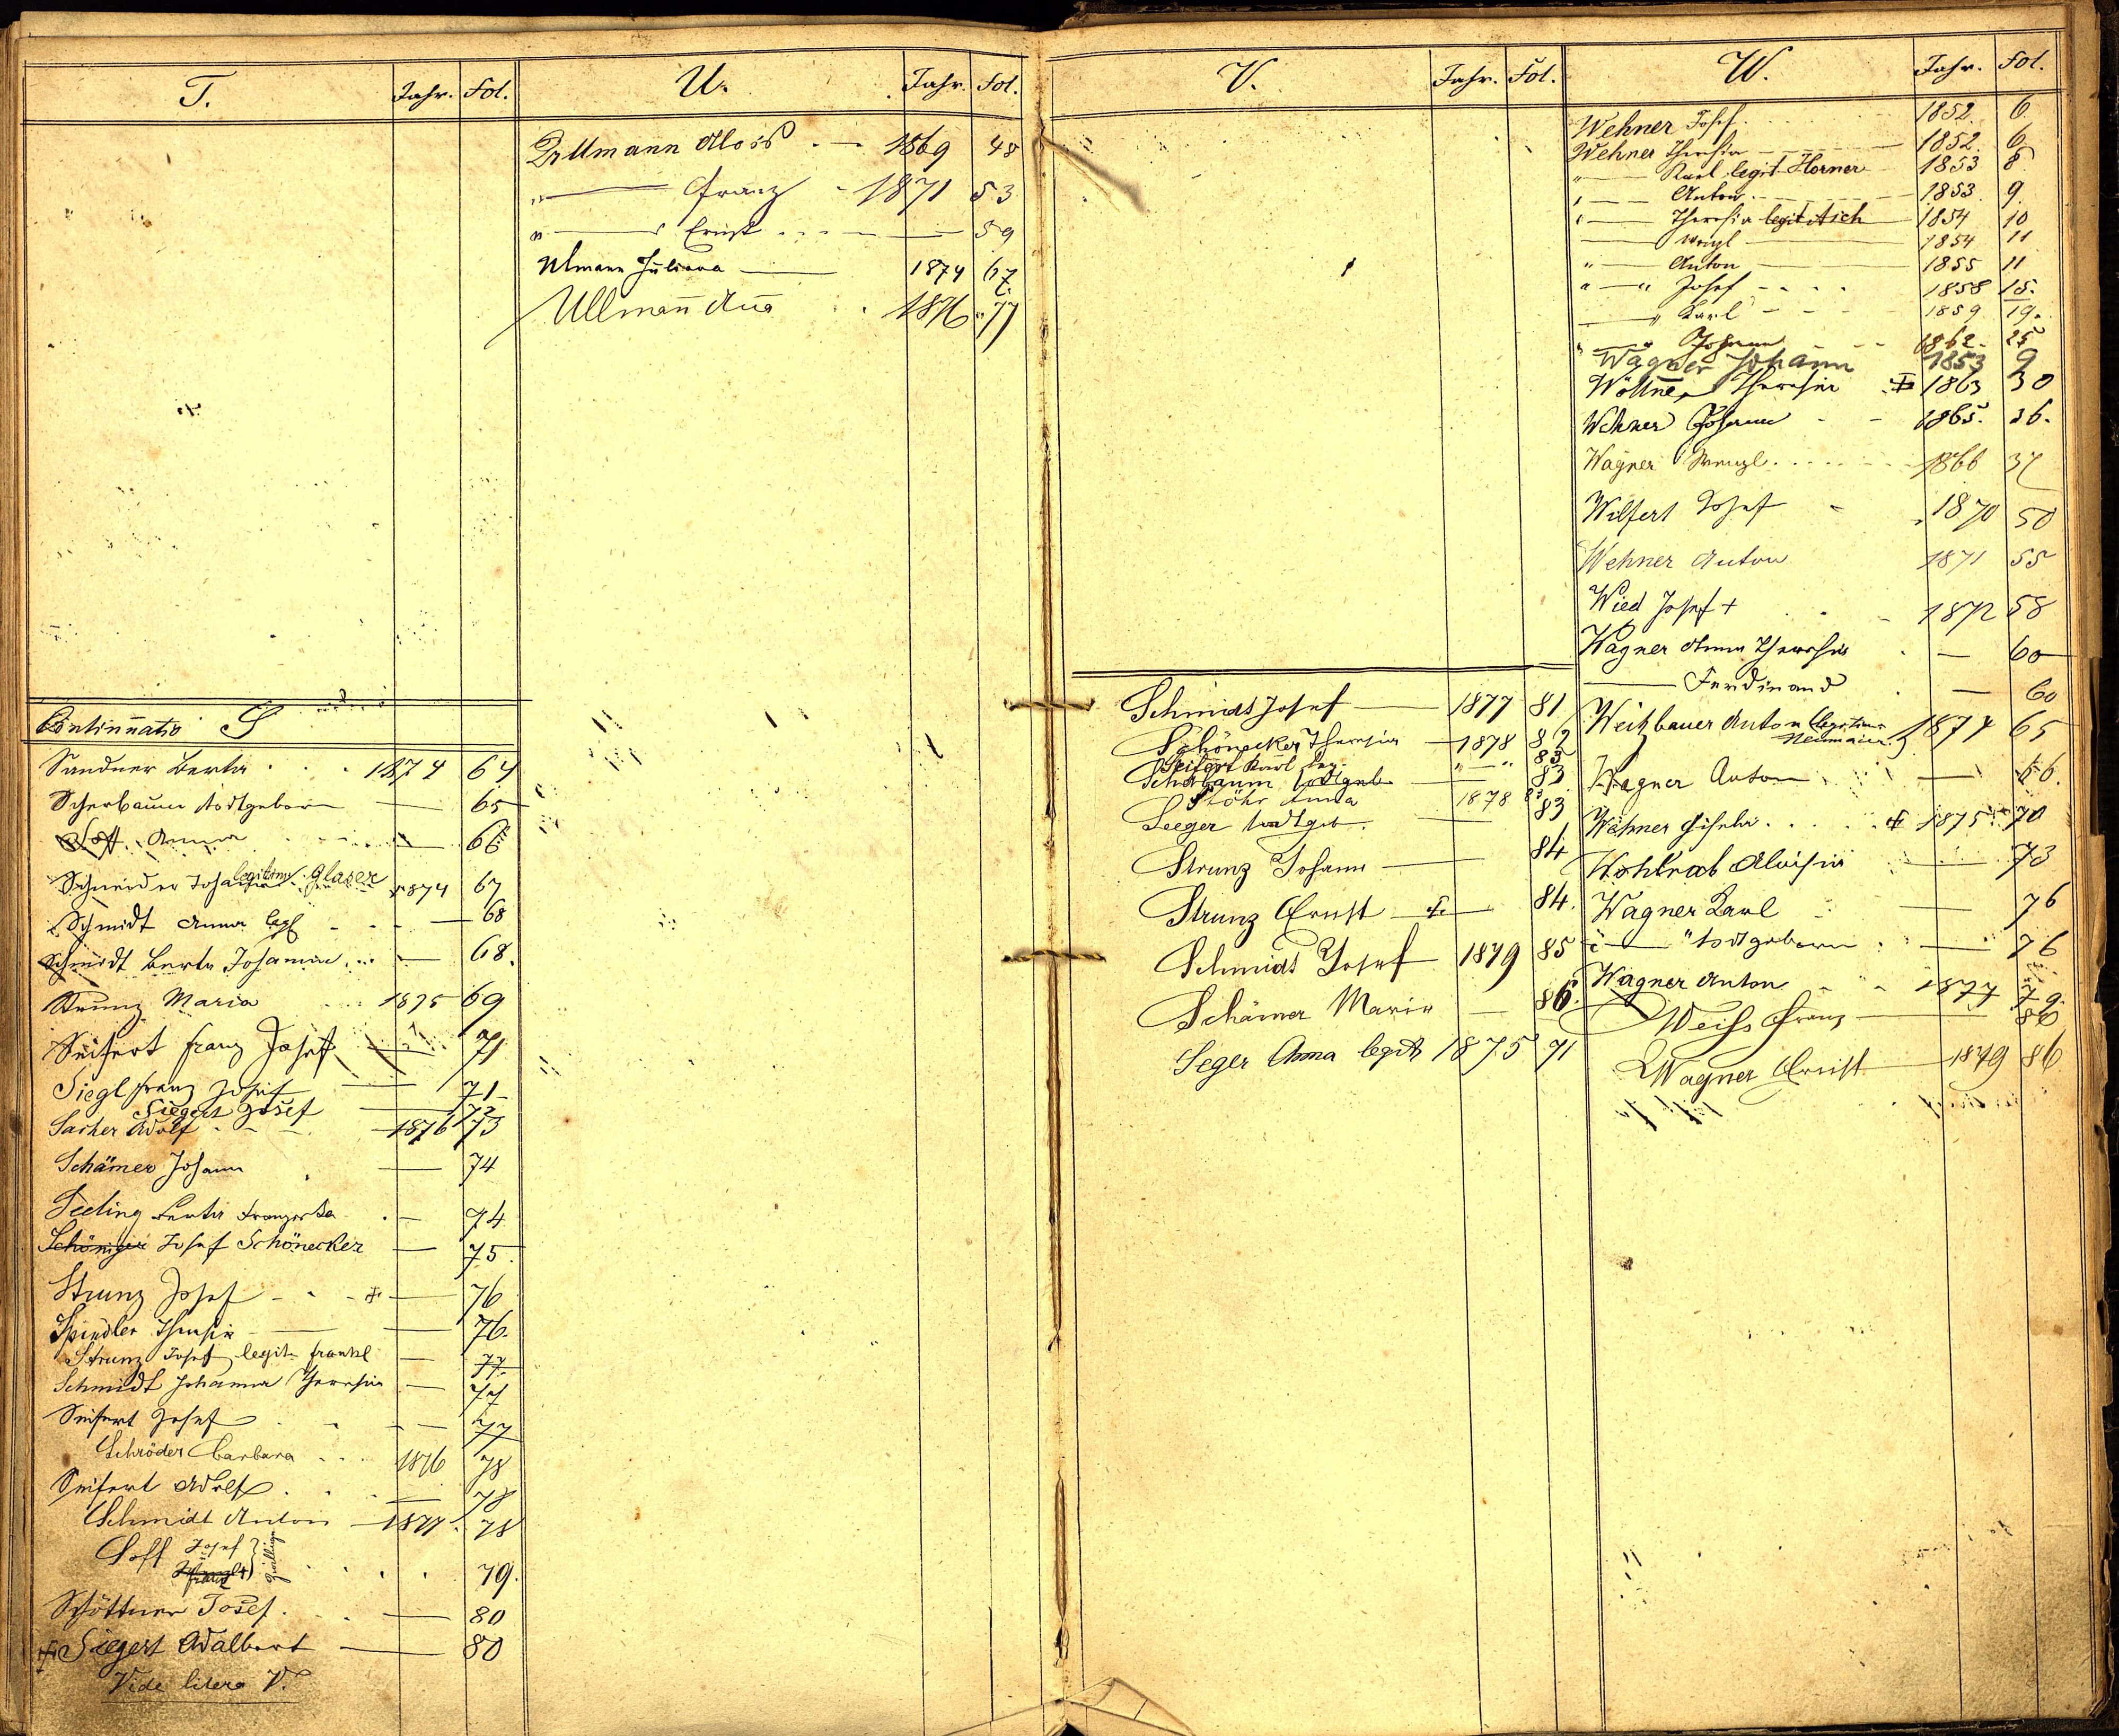 T. Jahr. Fol.
Continuatio S
Sandner Berta . . . 1874 64
Scherbaum todtgeboren — 65
Soff. Anna — 66
Schneider Johann legitimi Glaser 1874 67
Schmidt Anna legt — 68
Schmidt Berta Johanna — 68.
Strunz Maria 1875 69
Seifert Franz Josef — 71
Siegl Franz Josef — 71
Siegert Josef — 72
Sacher Adolf — 1876 73
Schämer Johann — 74
Seeling Berta Franziska — 74
Schöniger Josef Schönecker — 75.
Strunz Josef - - - + — 76
Spindler Theresia — 76.
Strunz Josef legit. Frankl — 77.
Schmidt Johanna Theresia — 77
Seifert Josef — 77
Schröder Barbara . . . 1876 78
Seifert Adolf . — 78
Schmidt Anton — 1877. 78
Soff Josef
Franz +) Zwillinge 79.
Schöttner Josef. — 80
+ Siegert Adalbert — 80
Vide litera V.
U. Jahr. Fol.
Ullmann Alois . — 1869 48
" — Franz - 1871 53
" — Ernst . . . — 59
Ulmann Juliana — 1874 67
Ullmañ Aña . . 1876 77
V. Jahr. Fol.
Schmidt Josef — 1877 81
Schönecker Theresia — 1878 82
Seifert Karl leg. " — " 83
Scherbaum todtgeb. — 83
Stöhr Anna 1878 83
Seeger todtgeb. — 83
Strunz Johann — 84
Strunz Ernst — + — 84.
Schmidt Josef 1879 85
Schämer Maria — 86.
Seger Anna legit 1875 71
W. Jahr. Fol.
Wehner Josef . . . 1852. 6.
Wehner Theresia — 1852. 6.
" — Karl legit. Horner — 1853 8
" — Anton . — 1853. 9.
" — Theresia legit Aich — 1854 10
— Wenzl — 1854 11
" — Anton — 1855 11
" — " Josef - - - - 1858 15.
— " Karl - - - 1859 19.
" — " Johann - - 1862. 25
Wagner Johann 1853 9
Wöllner Theresia + 1863 30
Wehner Johann - - 1865. 36.
Wagner Wenzl . . . . . 1866 37
Wilfert Josef - . 1870 50
Wehner Anton 1871 55
Wied Josef + . - 1872 58
Wagner Anna Theresia . — 60
— Ferdinand . — 60
Weitzbauer Anton (legitimi Neumaier) 1874 65
Wagner Anton — 66.
Wehner Gisela . . . . + 1875 70
Wohlrab Aloisia — 73
Wagner Karl — 76
" — " todtgeboren . — 76
Wagner Anton - - 1877 79.
Weiss Franz — 80
Wagner Ernst — 1879 86